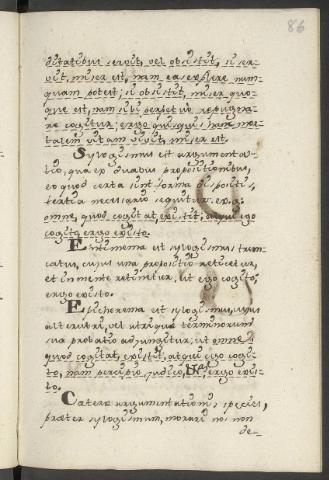 86
ditatibus servit, vel obsistit, si ser-
vit, miser est, nam eas explere num-
quam potest; si obsistit, miser quo-
que est, nam sibi perpetuo repugna-
re cogitur; ergo quisquis hanc mor-
talem vitam vivit, miser est.
Sylogismus est argumenta-
tio, qua ex duabus propositionibus,
eo quod certa sunt forma dispositi,
tertia necessario sequitur: e. g.
omne, quod cogitat, existit; atqui ego
cogito, ergo existo.
Entimema est sylogismus trun-
catus, cujus una propositio reticetur,
et in mente retinetur, ut ego cogito,
ergo existo.
Epicherema est sylogismus, cujus
alterutri, vel utrique terminorum
sua probatio adjungitur; ut omne
quod cogitat, existit, atqui ego cogi-
to, nam percipio, judico, &c, ergo exis-
to.
Cateræ argumentationis species,
præter sylogismum, morari nos non
de-